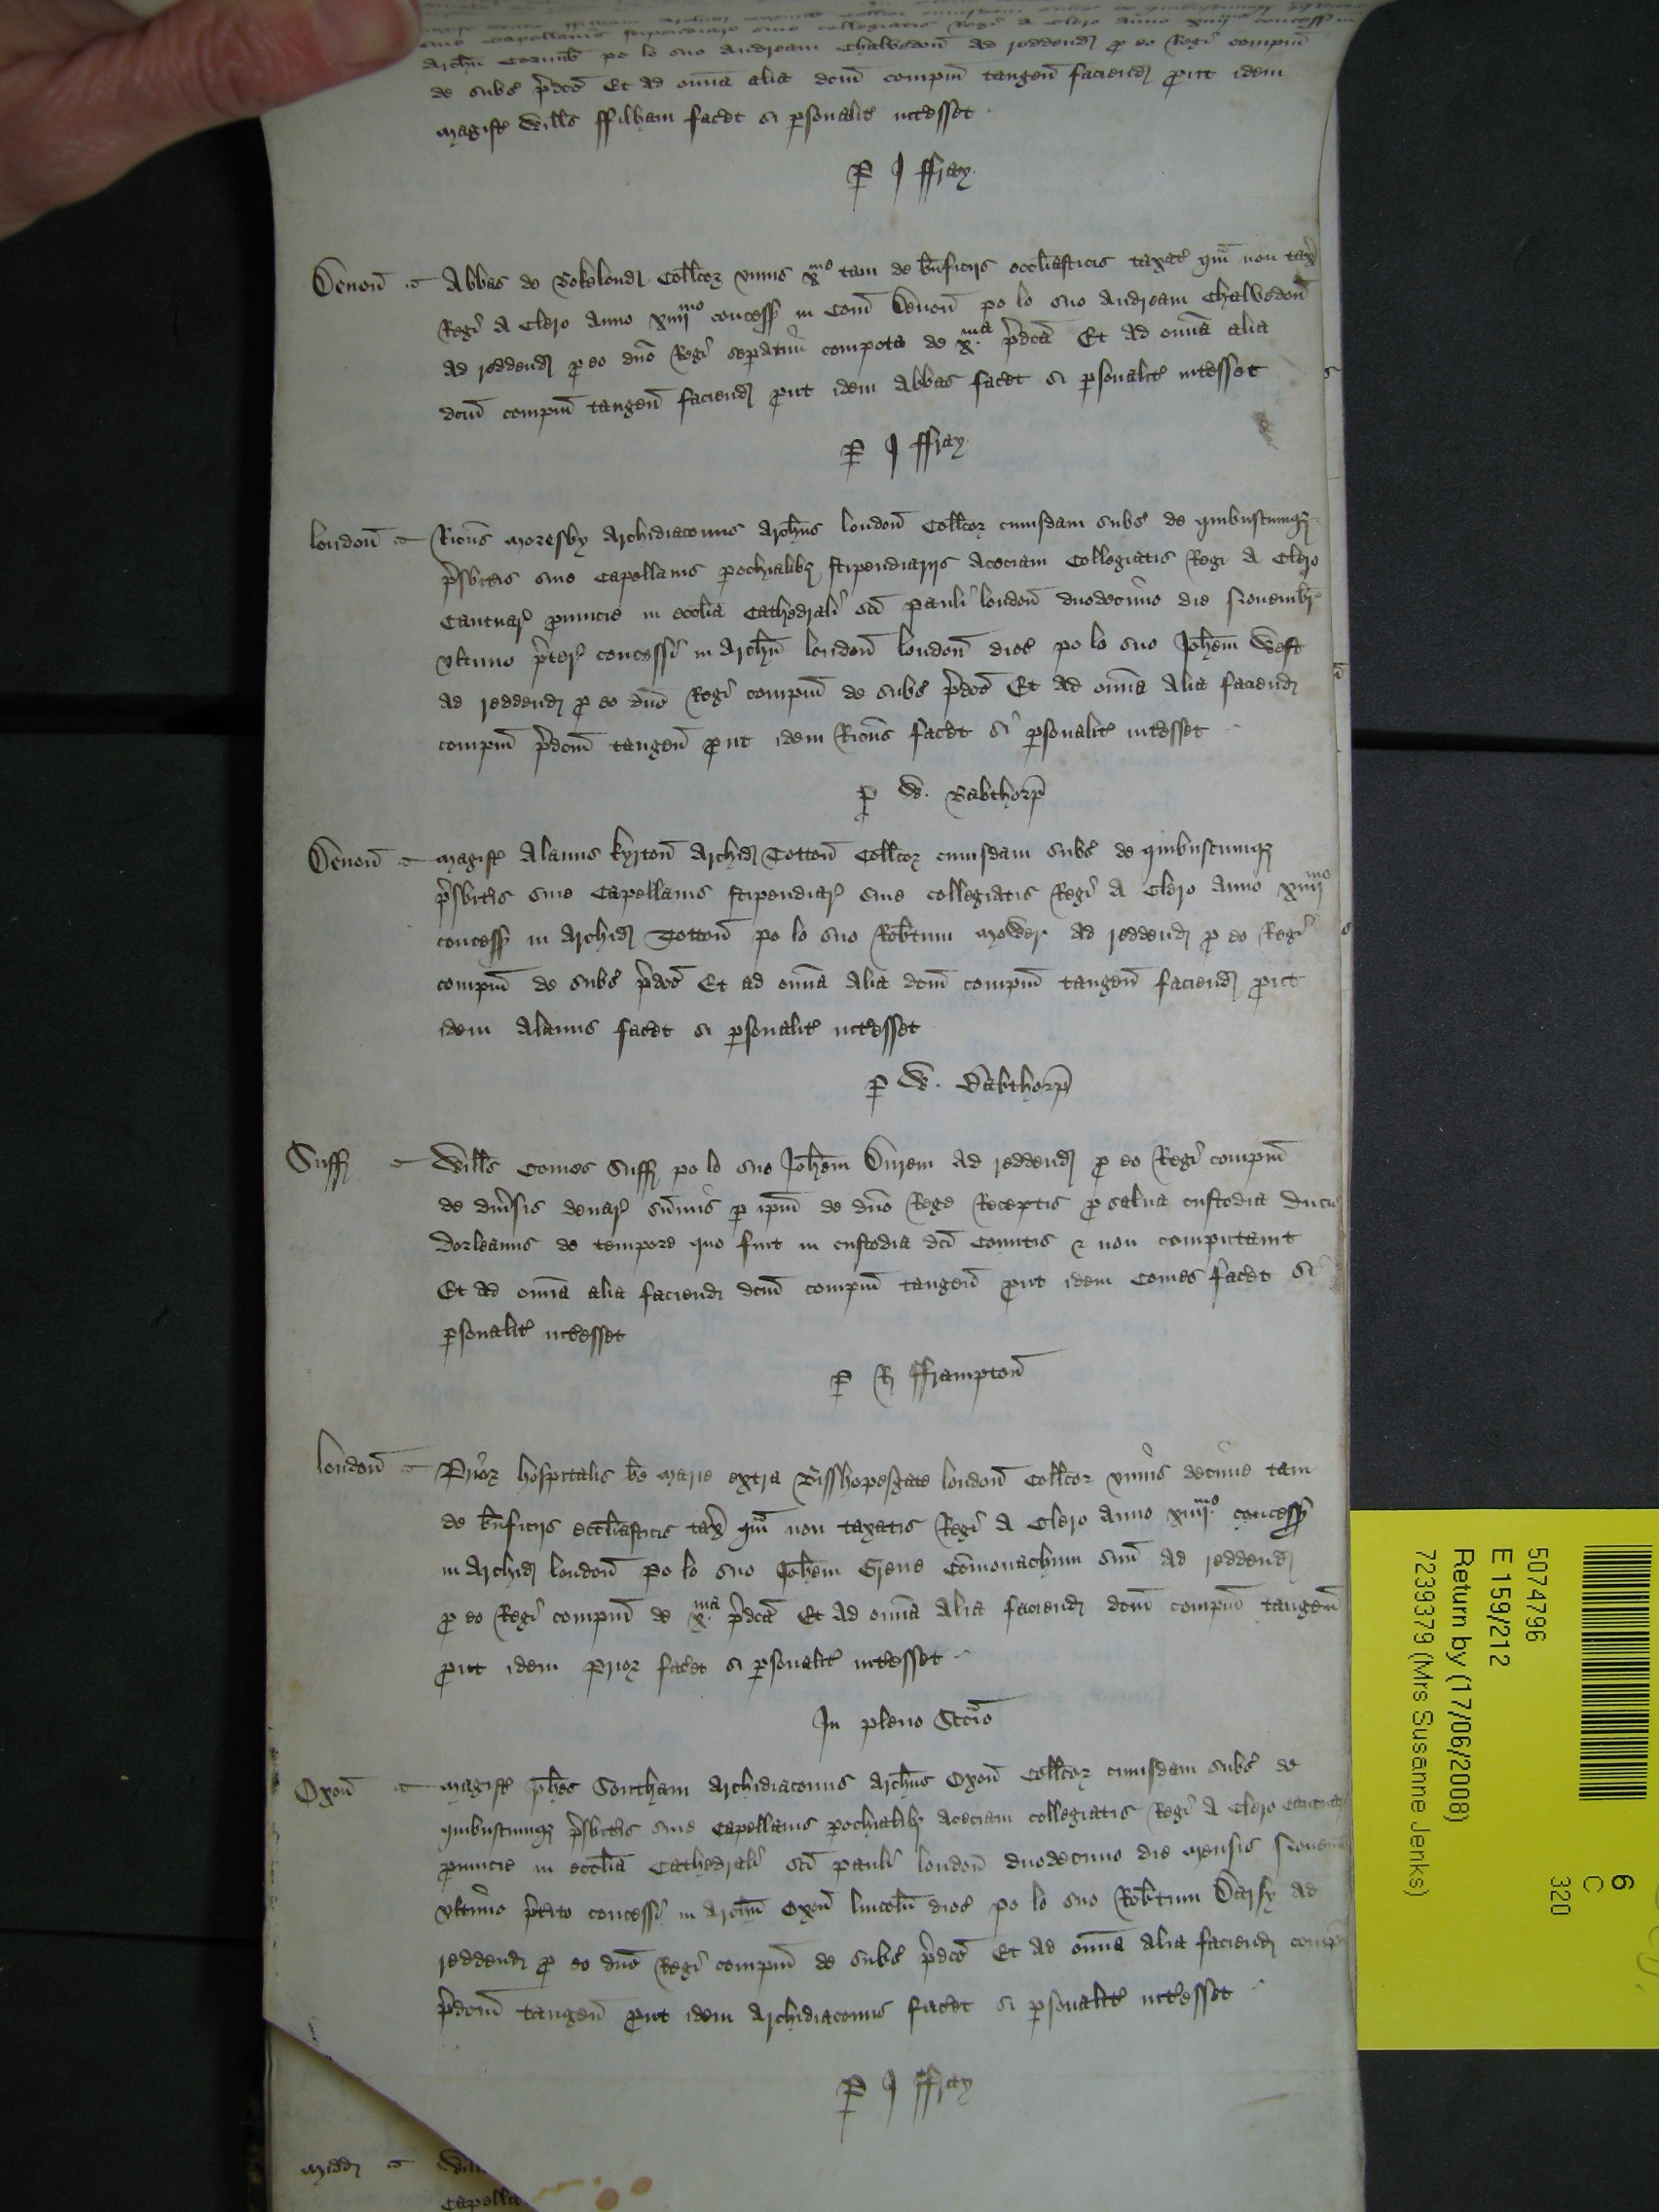 sive Capellanis stipendiar sive collegiatis Regi a Clero Anno xiiij concess in
Archn Cornub po lo suo Andream Chalvedon Ad reddend p eo Regi compm
de subs pdco Et Ad omia alia dcm compm tangen faciend put idem
magistr Wills ffilham facet si psonalit intesset
P J ffray
Devon Abbas de Bokelond Collcor unius xme tam de bnficijs eccliasticis taxat qm non tax
Regi A Clero Anno xiiijmo concess in Com Devon po lo suo Andream Chalvedon
Ad reddend p eo dno Regi sepatim compota de xma pdca Et Ad omia alia
dcm compm tangen faciend put idem Abbas facet si psonalit intesset
P J ffray
london Ricus Moresby Archidiaconus Archns london Collcor cuiusdam subs de quibuscumq
psbitis sive Capellanis pochialibz stipendiarijs Aceciam Collegiatis Regi A Clero
Cantuar pvincie in ecclia Cathedrali sci pauli london duodecimo die Novembr
ultimo pter concessi in Archn london london dioc po lo suo Johem West
Ad reddend p eo dno Regi compm de subs pdco Et Ad omia Alia faciend
compm pdcm tangen put idem Ricus facet si psonalit intesset
p W. Babthorp
Devon magistr Alanus kyrton Archid Totton Collcor cuiusdam subs de quibuscumq
psbitis sive Capellanis stipendiar sive collegiatis Regi A Clero Anno xiiijmo
concess in Archid Totton po lo suo Robtum Ad reddend p eo Regi
compm de subs pdco Et ad omia Alia dcm compm tangen faciend put
idem Alanus facet si psonalit intesset
P W. Babthorp
Suff Wills Comes Suff po lo suo Johem Ad reddend p eo Regi compm
de divsis denar summis p ipm de dno Rege Receptis p salva custodia Ducis
Dorleanus de tempore quo fuit in custodia dci Comitis & non computavit
Et Ad omia alia faciend dcm compm tangen put idem Comes facet si
psonalit intesset
P R fframpton
london Prior hospitalis be marie extra Bisshopesgate london Collcor unius decime tam
de bnficijs eccliasticis tax qm non taxatis Regi A Clero Anno xiiijmo concess
in Archid london po lo suo Johem Grene Comonachum suu Ad reddend
p eo Regi compm de xma pdca Et Ad omia Alia faciend dcm compm tangen
put idem Prior facet si psonalit intesset
In pleno Sccio
Oxon magistr phes Archidiaconus Archns Oxon Collcor cuiusdam subs de
quibuscumq psbitis sive Capellanis pochialibz Aceciam collegiatis Regi A Clero Cantuar
pvincie in ecclia Cathedrali sci pauli london duodecimo die mensis Novembr
ultimo ptito concessi in Archn Oxon lincoln dioc po lo suo Robtum Darsy Ad
reddend p eo dno Regi compm de subs pdco Et Ad omia Alia faciend compm
pdcm tangen put idem Archidiaconus facet si psonalit intesset
P J ffray
Midd Will
Capella
5074796
E 159/212
Return by (17/06/2008)
7239379 (Mrs Susanne Jenks)
6
C
320